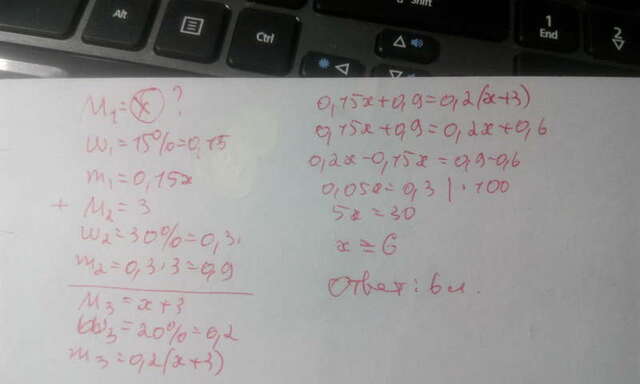 Alt
Ctrl
Shift
1
End
2
M₁ = x ?
ω₁ = 15% = 0,15
m₁ = 0,15x
+ M₂ = 3
ω₂ = 30% = 0,3.
m₂ = 0,3·3 = 0,9
M₃ = x+3
ω₃ = 20% = 0,2
m₃ = 0,2(x+3)
0,15x+0,9=0,2(x+3)
0,15x+0,9=0,2x+0,6
0,2x-0,15x=0,9-0,6
0,05x=0,3 | ·100
5x=30
x=6
Ответ: 6 л.